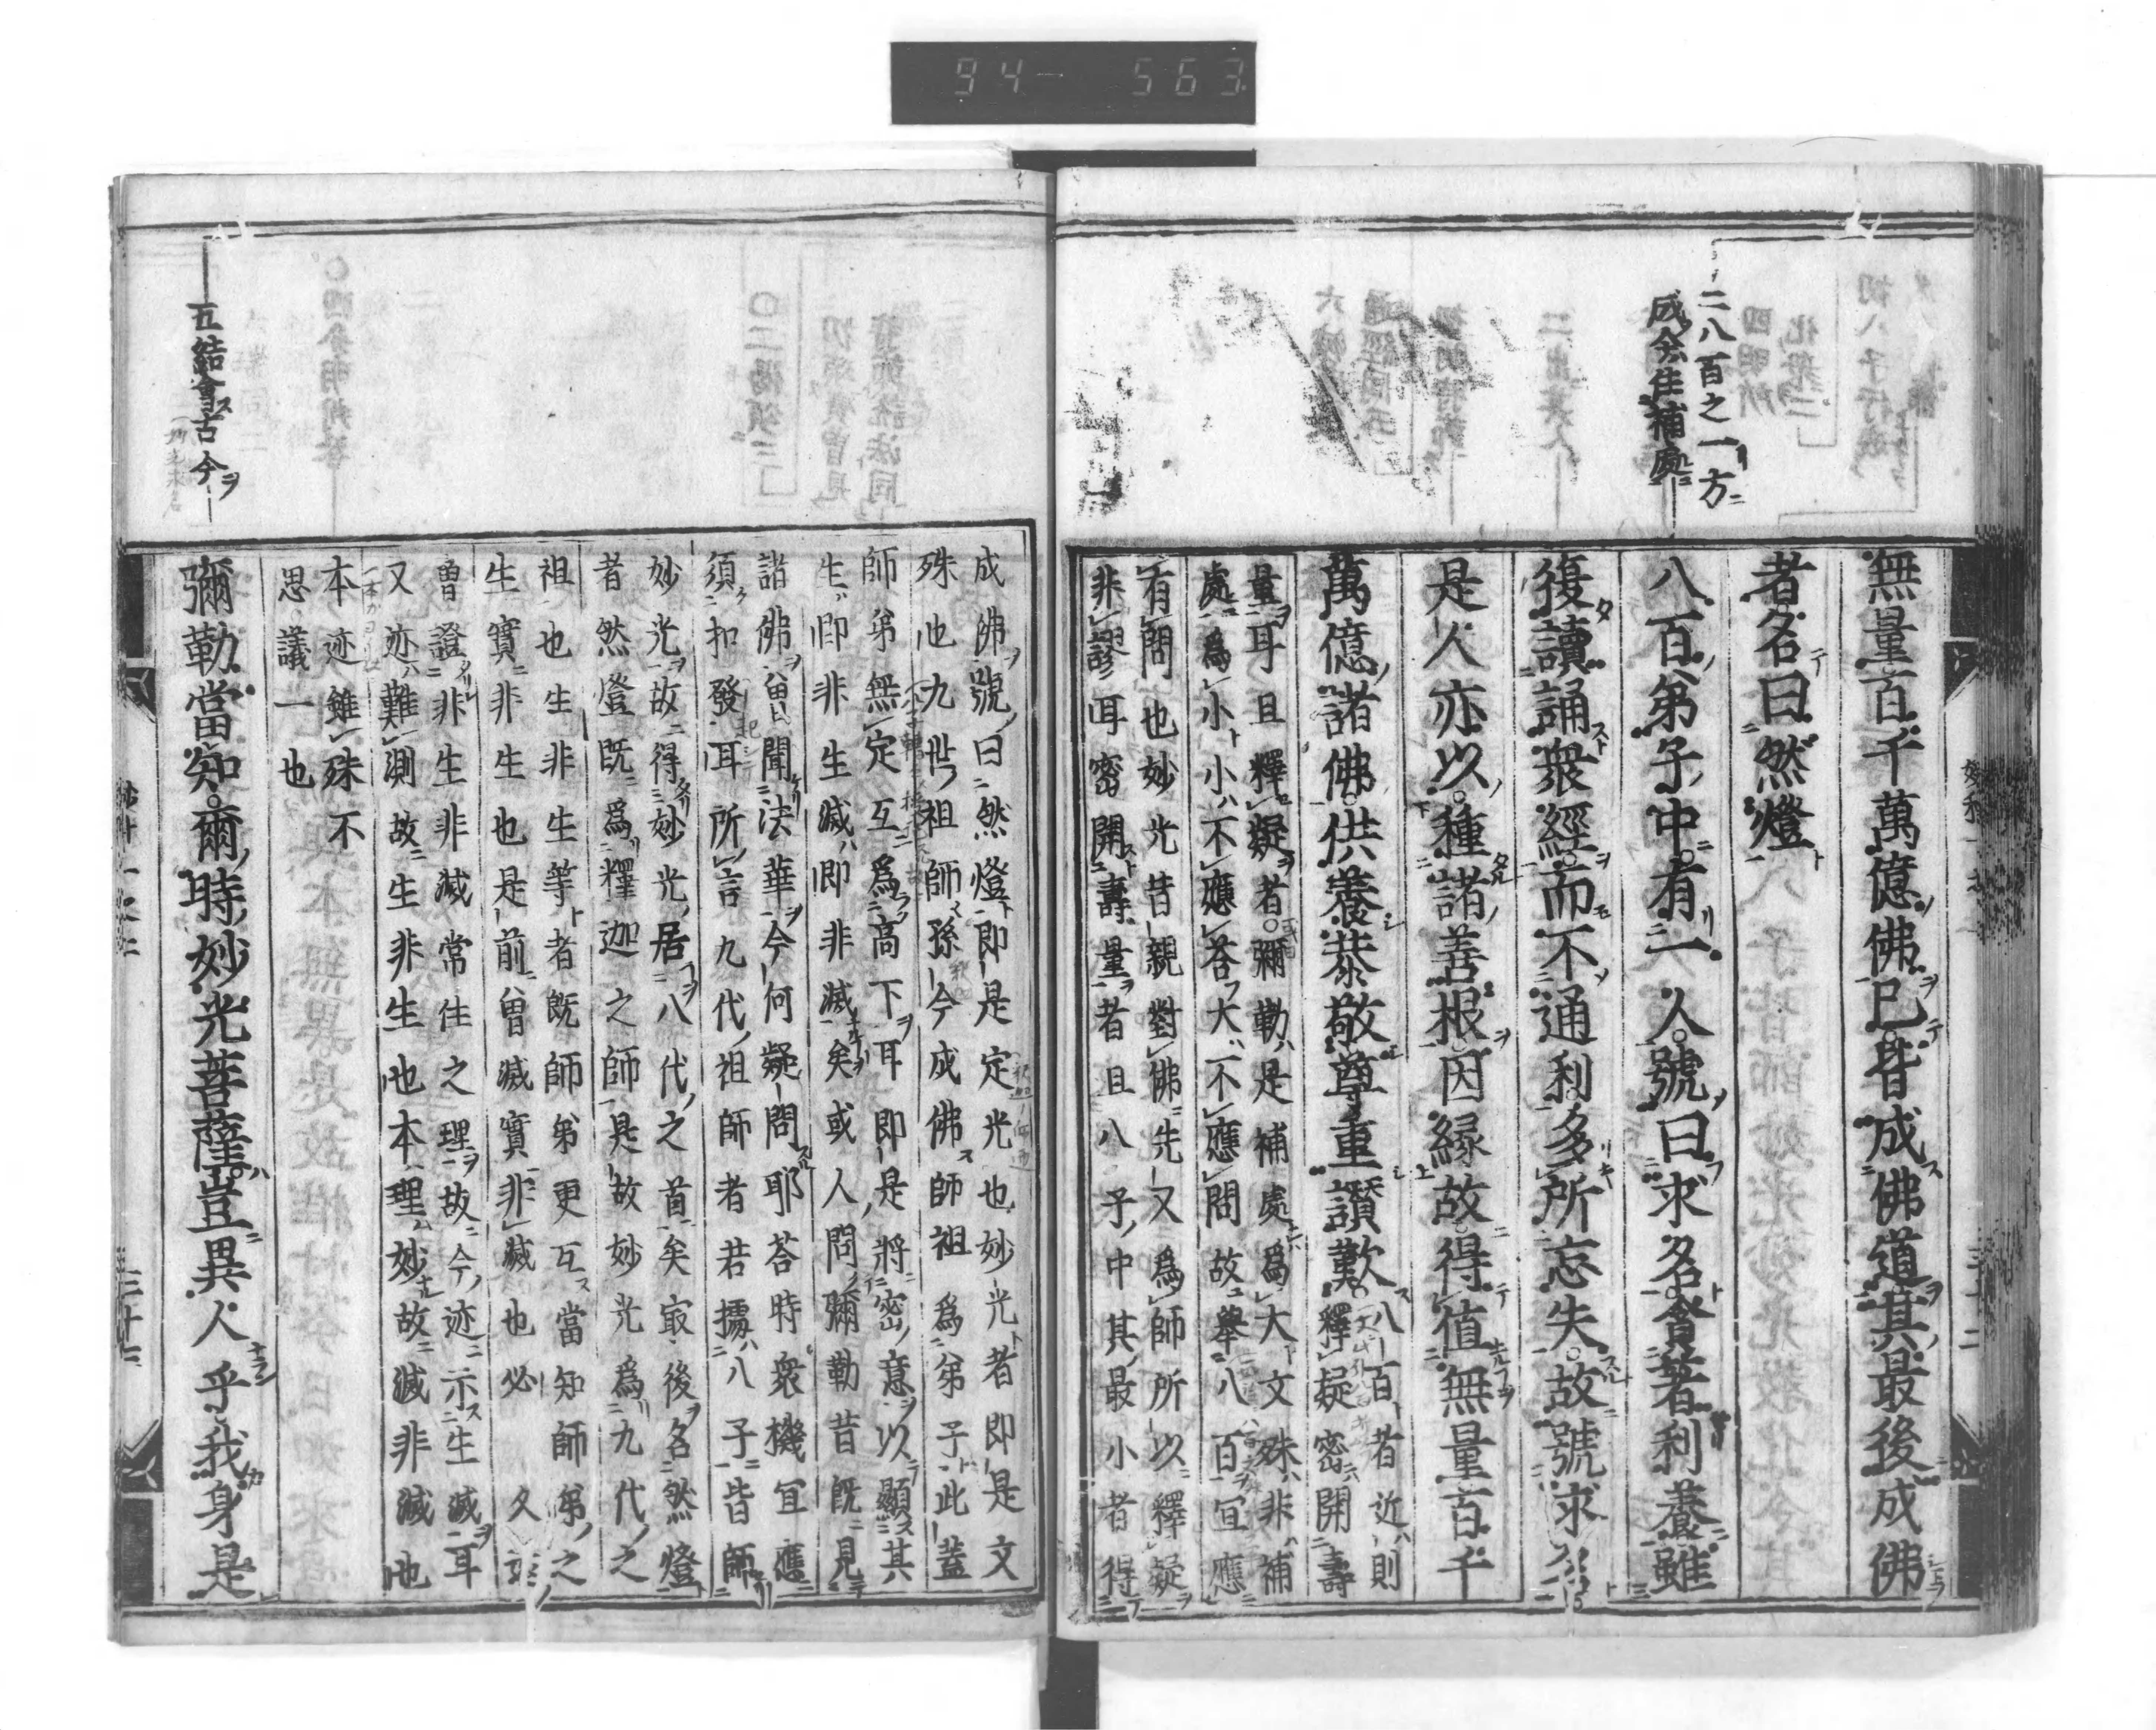 94- 563
二八百之一方
成今佳補處
無量百千萬億佛已皆成佛道其最後成佛
者名曰然燈
八百弟子中有一人號曰求名貪著利養雖
復讀誦衆經而不通利多所忘失故號求名
是人亦以種諸善根因縁故得値無量百千
萬億諸佛供養恭敬尊重讃歎八百者近則
釋疑密開壽
量耳且釋疑者彌勒是補處爲大文殊非補
處爲小小不應荅大不應問故擧八百宜應
有問也妙光昔親對佛先又爲師所以釋疑
非謬耳密開壽量者且八子中其最小者得
五結會古今
成佛號曰然燈即是定光也妙光者即是文
殊也九世祖師孫今成佛師祖爲弟子此蓋
師弟無定互爲高下耳即是將密意以顯其
生即非生滅即非滅矣或人問彌勒昔既見
諸佛曽聞法華今何疑問耶荅時衆機宜應
須扣發耳所言九代祖師者若據八子皆師
妙光故得妙光居八代之首矣㝡後名然燈
者然燈既爲釋迦之師是故妙光爲九代之
祖也生非生等者既師弟更互當知師弟之
生實非生也是前曽滅實非滅也必久
曽證非生非滅常住之理故今迹示生滅耳
又迹難測故生非生也本理妙故滅非滅也
本迹雖殊不
思議一也
彌勒當知爾時妙光菩薩豈異人乎我身是